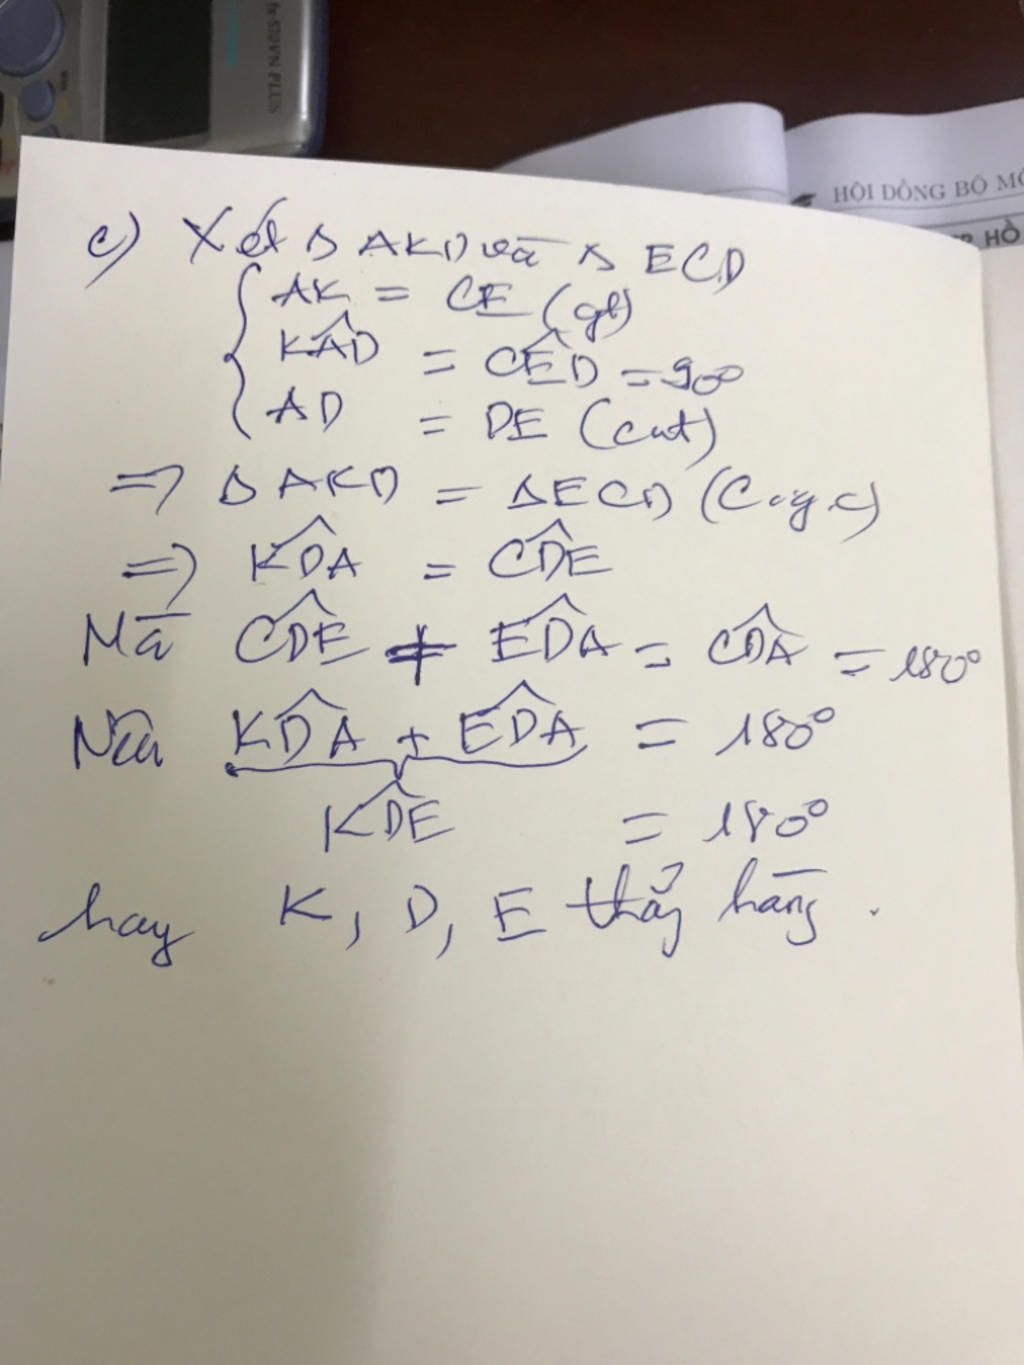 fx-570VN PLUS
HỘI ĐỒNG BỘ MÔ
HỒ
c) Xét Δ AKD và Δ ECD
AK = CE (gt)
KÂD = CÊD = 90°
AD = DE (cmt)
=> Δ AKD = ΔECD (C.g.c)
=> KD̂A = CD̂E
Mà CD̂E + ED̂A = CD̂A = 180°
Nên KD̂A + ED̂A = 180°
KD̂E = 180°
hay K, D, E thẳng hàng.